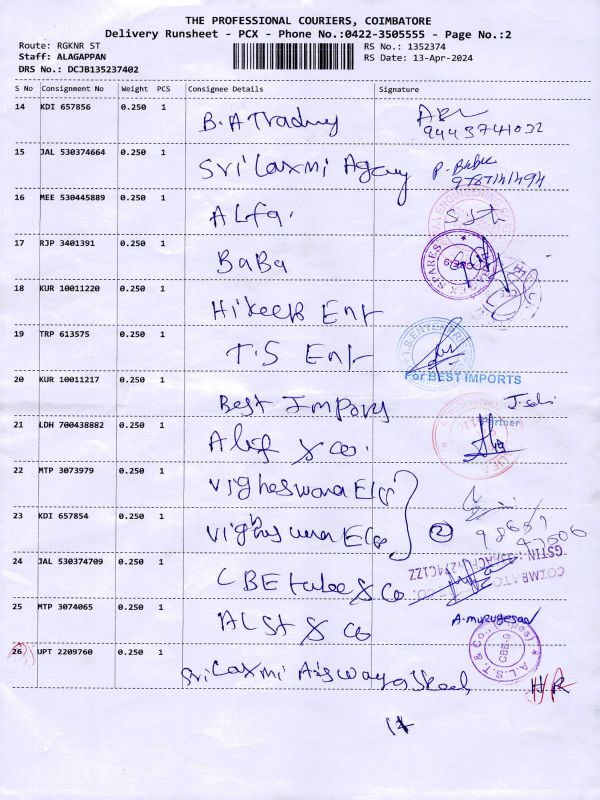 THE PROFESSIONAL COURIERS, COIMBATORE
Delivery Runsheet - PCX - Phone No.:0422-3505555 - Page No.:2
Route: RGKNR ST
RS No.: 1352374
Staff: ALAGAPPAN
RS Date: 13-Apr-2024
DRS No.: DCJB135237402
S No Consignment No Weight PCS Consignee Details Signature
14 KDI 657856 0.250 1 B.A Trading
15 JAL 530374664 0.250 1 Sri Laxmi Agency P. Babu
16 MEE 530445889 0.250 1 ALfa.
17 RJP 3401391 0.250 1 BaBa
18 KUR 10011220 0.250 1 Ent
19 TRP 613575 0.250 1 T.S Ent
For BEST IMPORTS
20 KUR 10011217 0.250 1 Best Imports
21 LDH 700438882 0.250 1 Alif & Co.
Partner
22 MTP 3073979 0.250 1 Vigheswara
23 KDI 657854 0.250 1 2
24 JAL 530374709 0.250 1 CBE & Co
25 MTP 3074065 0.250 1 ALST & Co A.murugesan
A.L.S.T. & Co., (Pipes) CBE-9
26 UPT 2209760 0.250 1 Sri Laxmi HR